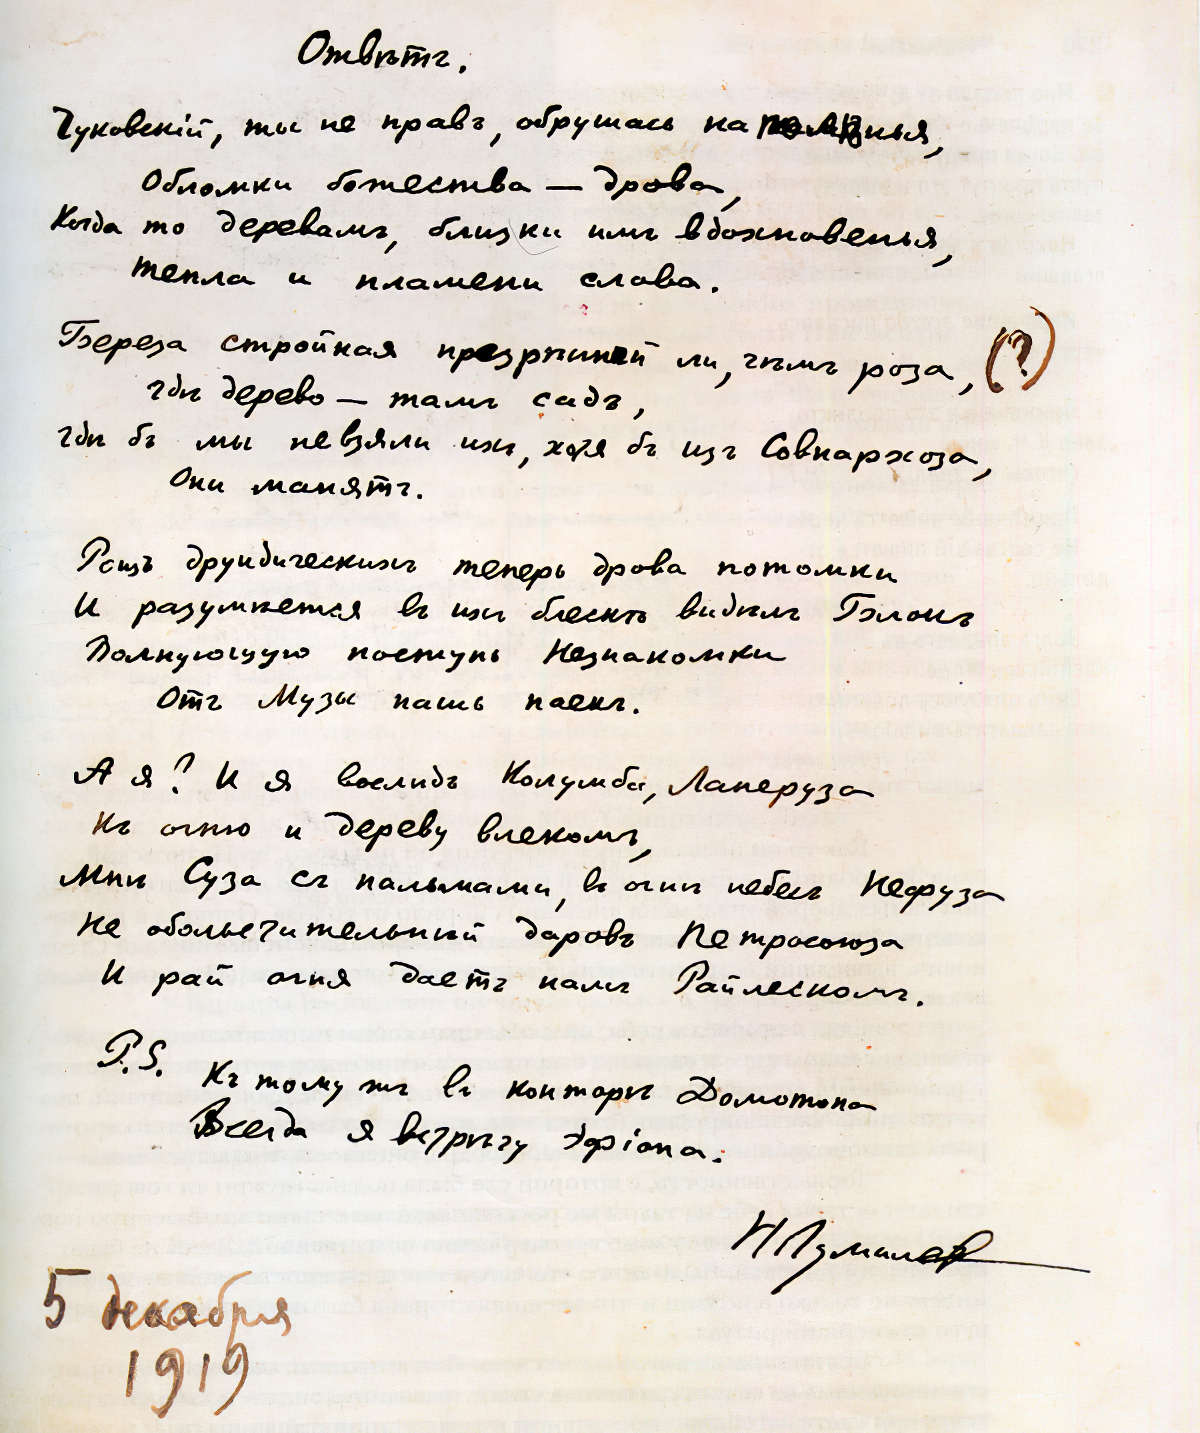 Отвѣтъ.
Чуковскій, ты не правъ, обрушась на полѣнья,
Обломки божества — дрова,
Когда то деревамъ, близки имъ вдохновенья,
Тепла и пламени слова.
Береза стройная презрѣнней ли, чѣмъ роза, (?)
гдѣ дерево — тамъ садъ,
гдѣ бъ мы не взяли ихъ, хотя бъ изъ Совнархоза,
Они манятъ.
Рощъ друидическихъ теперь дрова потомки
И разумѣется въ ихъ блескѣ видѣлъ Блокъ
Волнующую поступь Незнакомки
Отъ Музы нашъ паекъ.
А я? И я вослѣдъ Колумба, Лаперуза
Къ огню и дереву влекомъ,
Мнѣ Суза съ пальмами, въ огнѣ небесъ Нефуза
Не обольстительнѣй даровъ Петросоюза
И рай огня даетъ намъ Райлескомъ.
P.S. Къ тому жъ въ конторѣ Домотопа
Всегда я встрѣчу Эфіопа.
Н Гумилев
5 декабря
1919